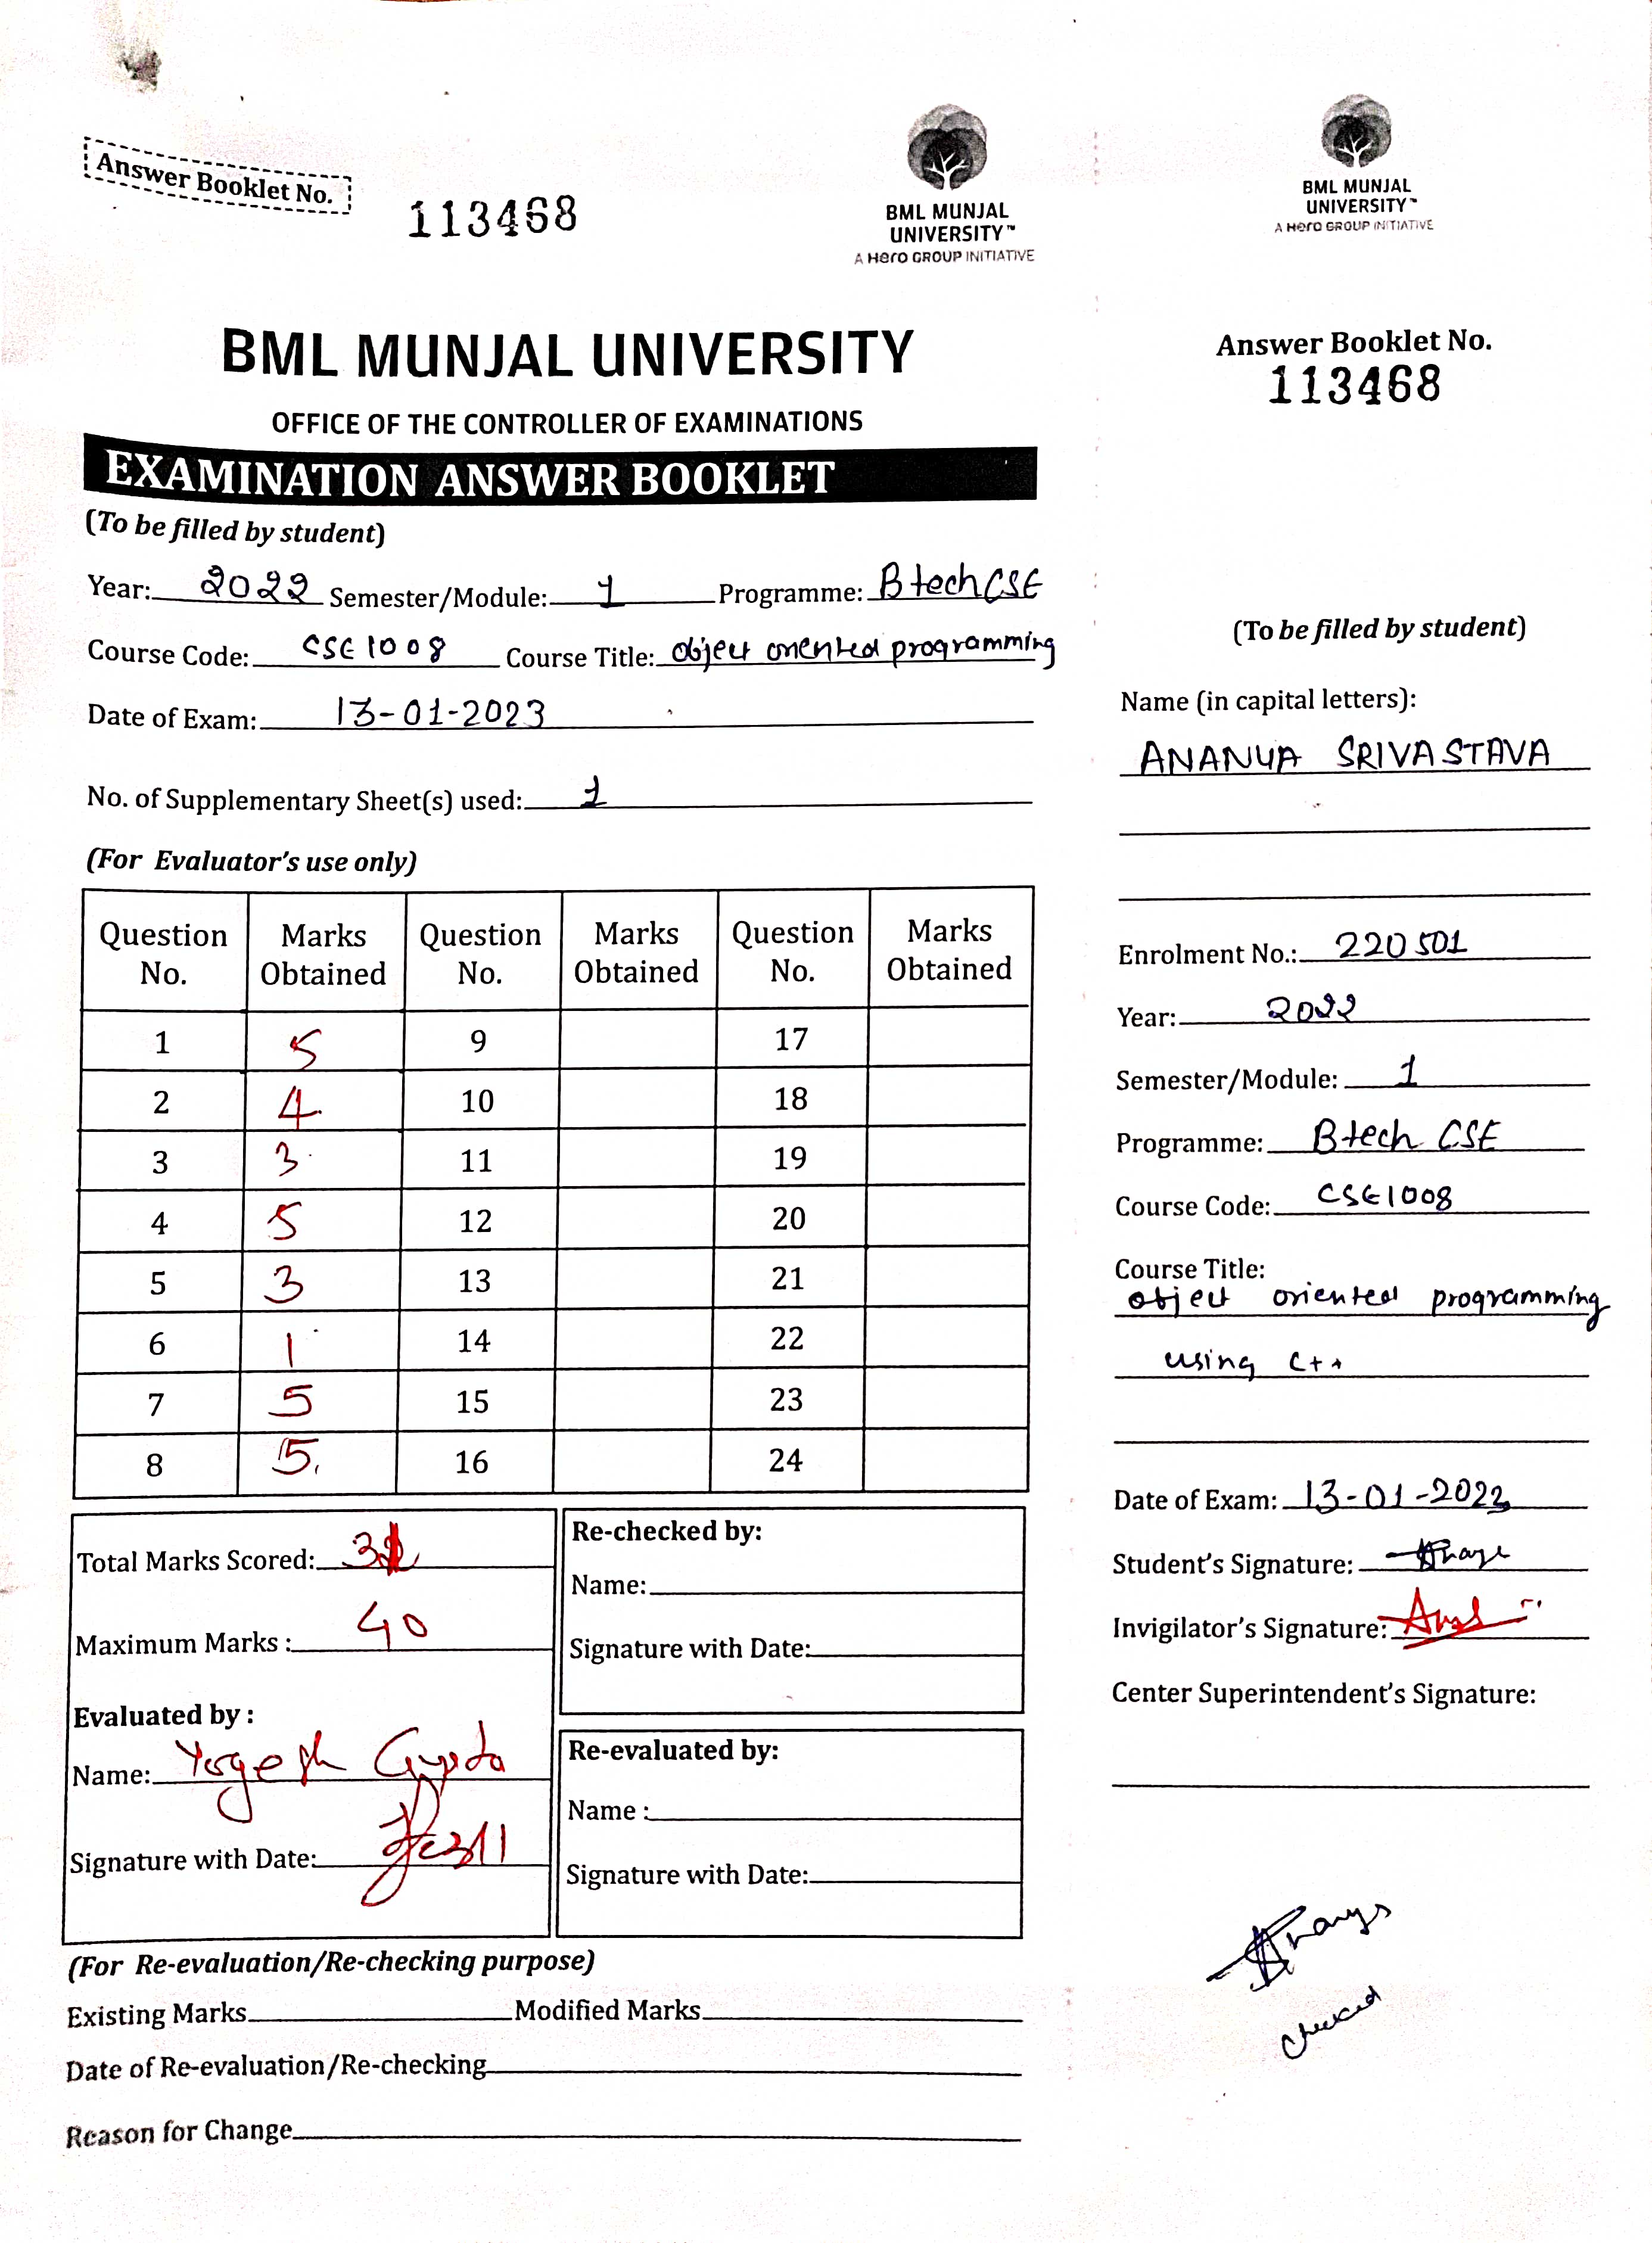 Answer Booklet No.
113468
BML MUNJAL
UNIVERSITY™
A Hero GROUP INITIATIVE
BML MUNJAL UNIVERSITY
OFFICE OF THE CONTROLLER OF EXAMINATIONS
EXAMINATION ANSWER BOOKLET
(To be filled by student)
Year: 2022 Semester/Module: 1 Programme: B tech CSE
Course Code: CSE 1008 Course Title: object oriented programming
Date of Exam: 13-01-2023
No. of Supplementary Sheet(s) used: 1
(For Evaluator's use only)
Question No. Marks Obtained Question No. Marks Obtained Question No. Marks Obtained
1 5 9 17
2 4 10 18
3 3 11 19
4 5 12 20
5 3 13 21
6 1 14 22
7 5 15 23
8 5 16 24
Total Marks Scored: 31
Maximum Marks : 40
Evaluated by :
Name: Yogesh Gupta
Signature with Date:
Re-checked by:
Name:
Signature with Date:
Re-evaluated by:
Name :
Signature with Date:
(For Re-evaluation/Re-checking purpose)
Existing Marks Modified Marks
Date of Re-evaluation/Re-checking
Reason for Change
BML MUNJAL
UNIVERSITY™
A Hero GROUP INITIATIVE
Answer Booklet No.
113468
(To be filled by student)
Name (in capital letters):
ANANYA SRIVASTAVA
Enrolment No.: 220501
Year: 2022
Semester/Module: 1
Programme: B tech CSE
Course Code: CSE1008
Course Title:
object oriented programming
using C++
Date of Exam: 13-01-2023
Student's Signature:
Invigilator's Signature:
Center Superintendent's Signature:
checked